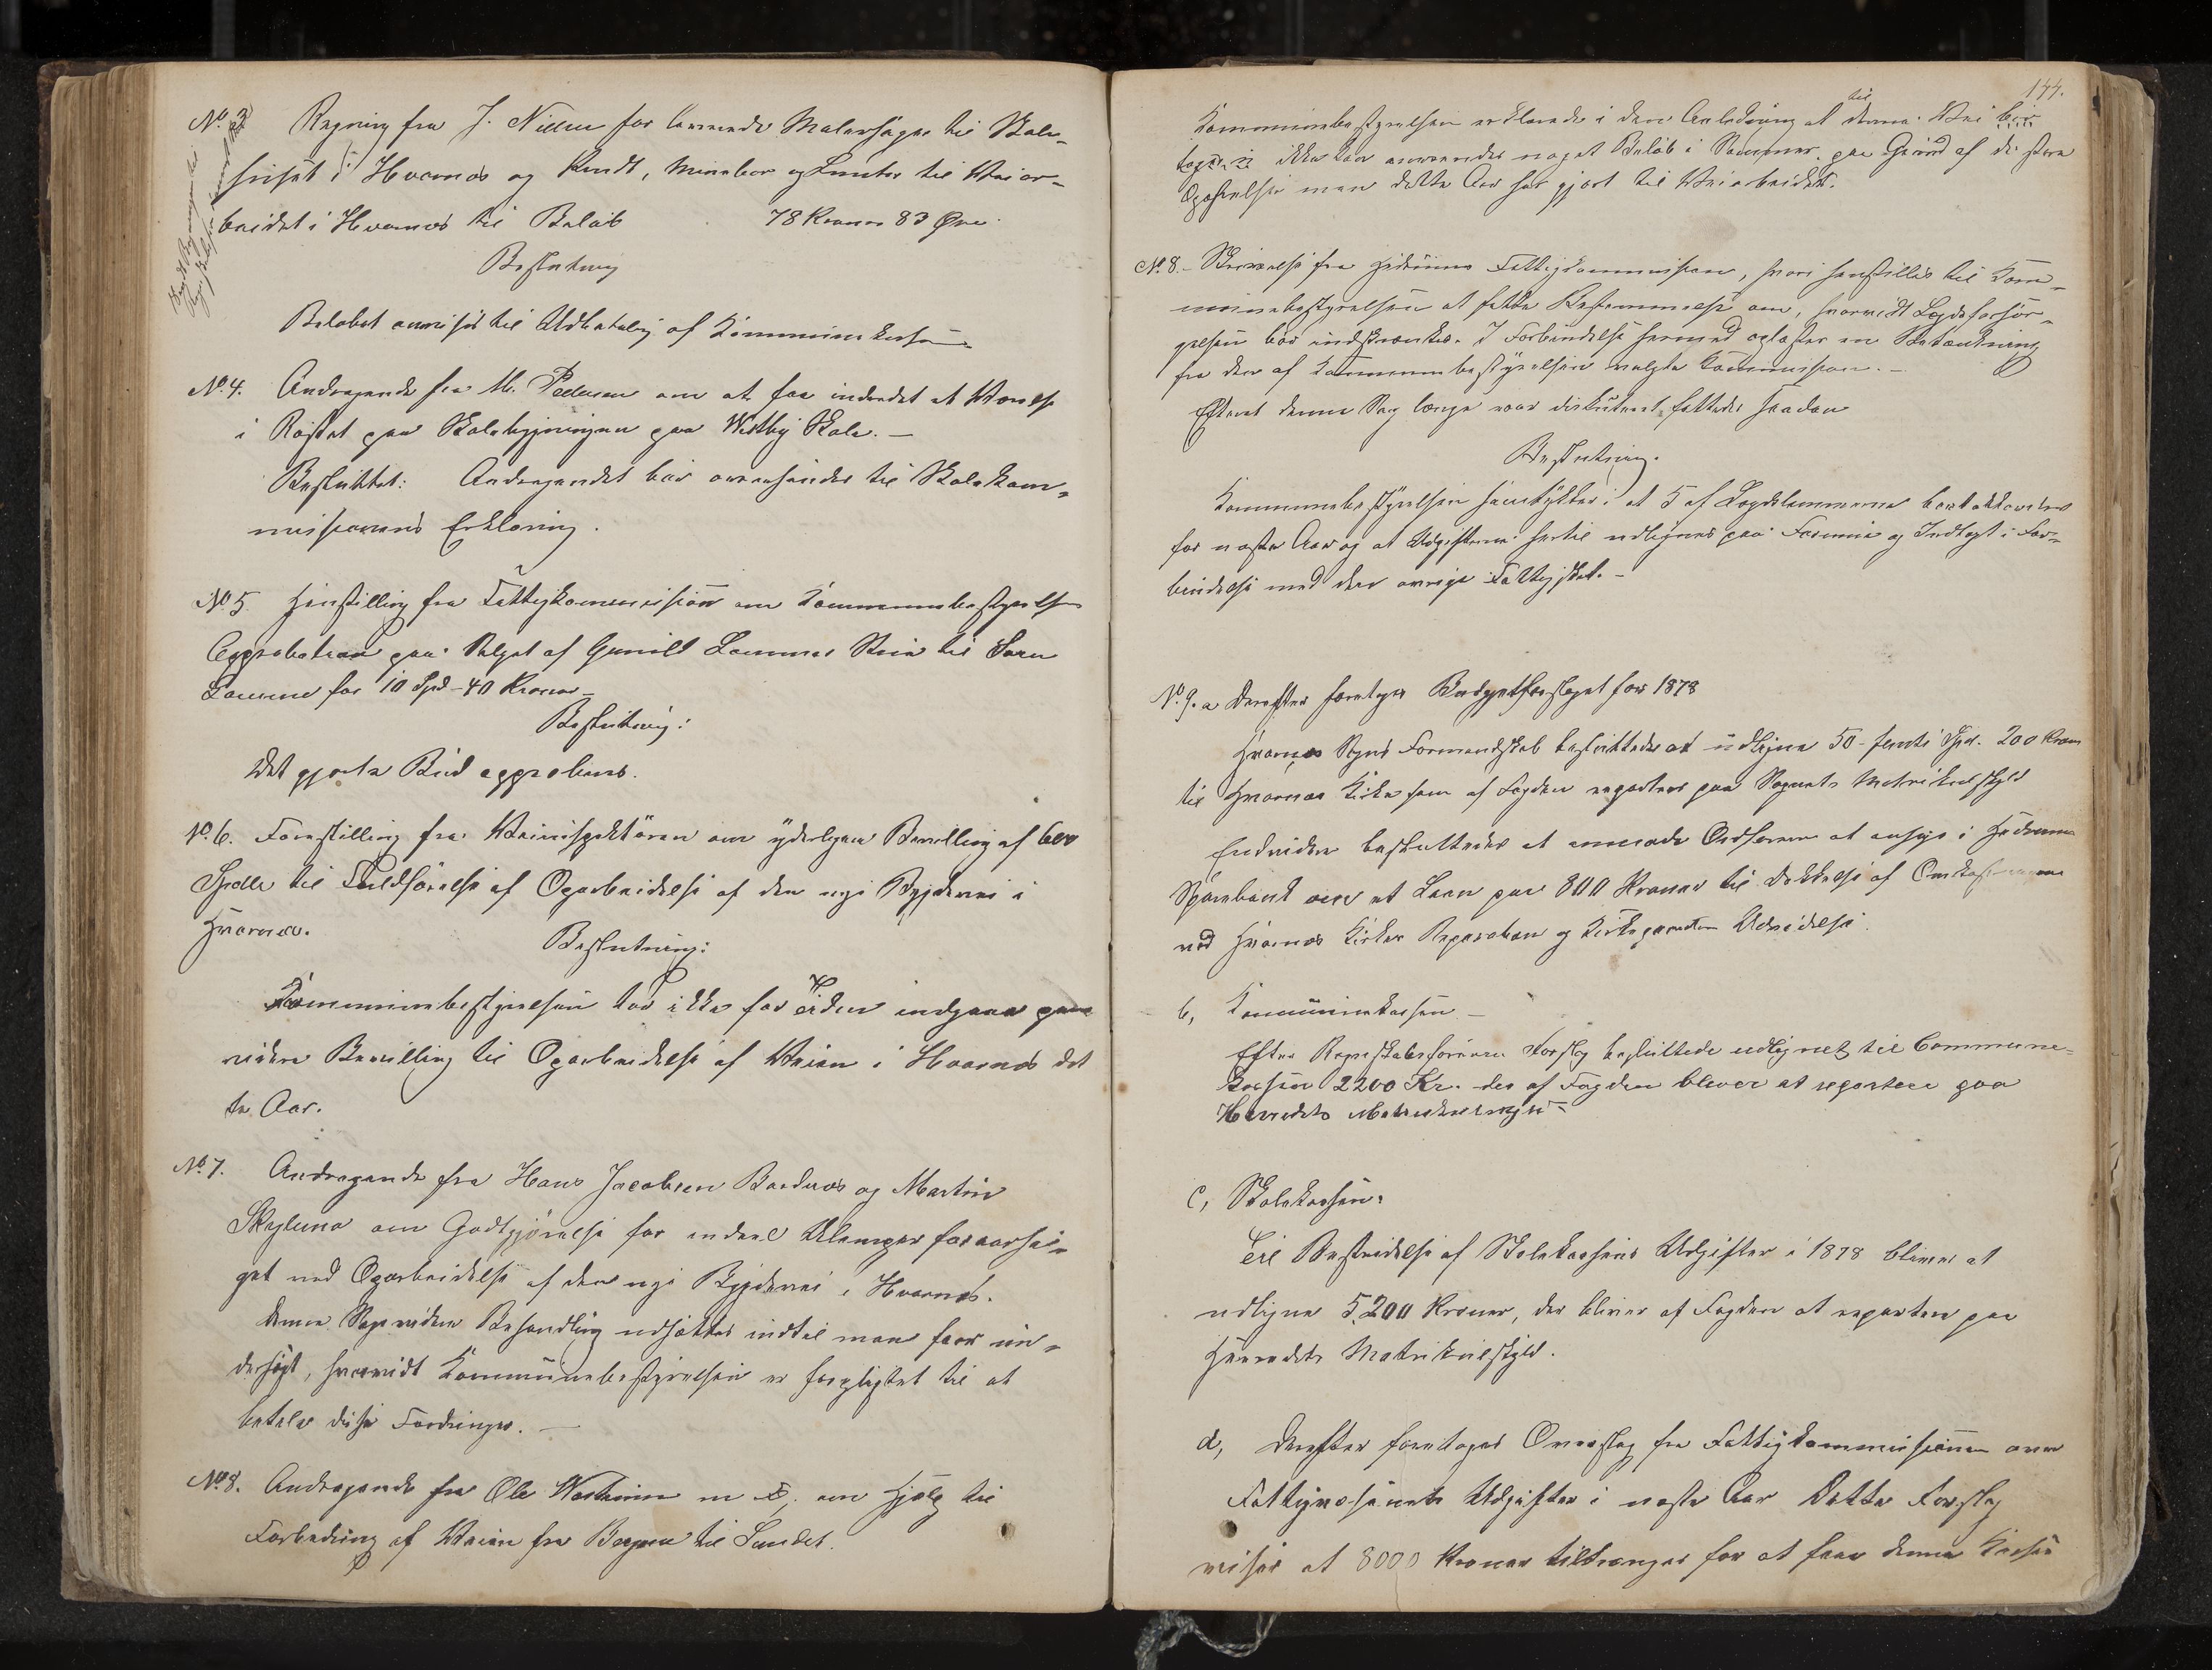 No. 3 Regning fra J. Nilsen for leverede Malersager til Skole-
huset i Hvarnæs og Krudt, Minebor og Lunter til Veiar-
beidet i Hvarnæs til Beløb 78 Kroner 83 Øre.
Beslutning
Beløbet anvises til Udbetaling af Kommunekassen
No. 4. Andragende fra M. Pedersen om at faa indredet et Værelse
i Røstet paa Skolebygningen paa Vestby Skole. —
Besluttet: Andragendet bør oversendes til Skolekom-
missionens Erklæring.
No 5. Henstilling fra Fattigkommission om Kommunebestyrelsens
Approbation paa Salget af Gunild Lammes til
Lamme for 10 Spd - 40 Kroner -
Beslutning:
Det gjorte Bud approberes.
No. 6. Forestilling fra Veiinspektøren om yderligere Bevilling af 600
Spdlr til Fuldførelse af Oparbeidelse af den nye Bygdevei i
Hvarnæs.
Beslutning:
Kommunebestyrelsen tør ikke for Tiden indgaa paa
videre Bevilling til Oparbeidelse af Veien i Hvarnæs det
te Aar.
No. 7. Andragende fra Hans Jacobsen og Martin
om Godtgjørelse for endeel Ulemper foraarsa-
get ved Oparbeidelse af den nye Bygdevei i Hvarnæs.
Denne Sags videre Behandling udsættes indtil man faar un-
dersøgt, hvorvidt Kommunebestyrelsen er forpligtet til at
betale disse Fordringer. —
No 8. Andragende fra Ole m. fl. om Hjælp til
Forbedring af Veien fra til Sundet.
144.
Kommunebestyrelsen erklærede i den Anledning at til denne Vei
ikke kan anvendes noget Beløb i Sommer, paa Grund af de store
Opofrelser man dette Aar har gjort til Veiarbeidet.
No. 8. - Skrivelse fra Hedrums Fattigkommission, hvori henstilles til Kom-
munebestyrelsen at fatte Bestemmelse om, hvorvidt Lægdsforsør-
gelsen bør indskrænkes. I Forbindelse hermed oplæstes en Betænkning
fra den af Kommunebestyrelsen valgte Kommission. -
Efterat denne Sag længe var diskuteret, fattedes saadan
Beslutning.
Kommunebestyrelsen samtykker i at 5 af Lægdslemmerne bortakkorderes
for næste Aar og at Udgifterne hertil udlignes paa Formue og Indtægt i For-
bindelse med den øvrige Fattigskat. -
No. 9. a Derefter foretoges Budgetforslaget for 1878
Hvarnæs Sogns Formandskab besluttede at udligne 50 - femti Spd. 200 Kroner
til Hvarnæs Kirke som af Fogden repartes paa Sognets Matrikulskyld
Endvidere besluttedes at anmode Ordføreren at ansøge i Hedrum
Sparebank om et Laan paa 800 Kroner til Dækkelse af Omkostningerne
ved Hvarnæs Kirkes Reparation og Kirkegaardens Udvidelse.
b, Kommunekassen —
Efter Regnskabsførerens Forslag besluttede udlignet til Commune-
kassen 2200 Kr. der af Fogden bliver at repartere paa
Herredets Matrikulskyld -
c, Skolekassen:
Til Bestridelse af Skolekassens Udgifter i 1878 bliver at
udligne 5,200 Kroner, der bliver af Fogden at repartere paa
Herredets Matrikulskyld.
d, Derefter foretoges Overslag fra Fattigkommissionen over
Fattigvæsenets Udgifter i næste Aar Dette Forslag
viser at 8000 Kroner tiltrænges for at faae denne Kasse